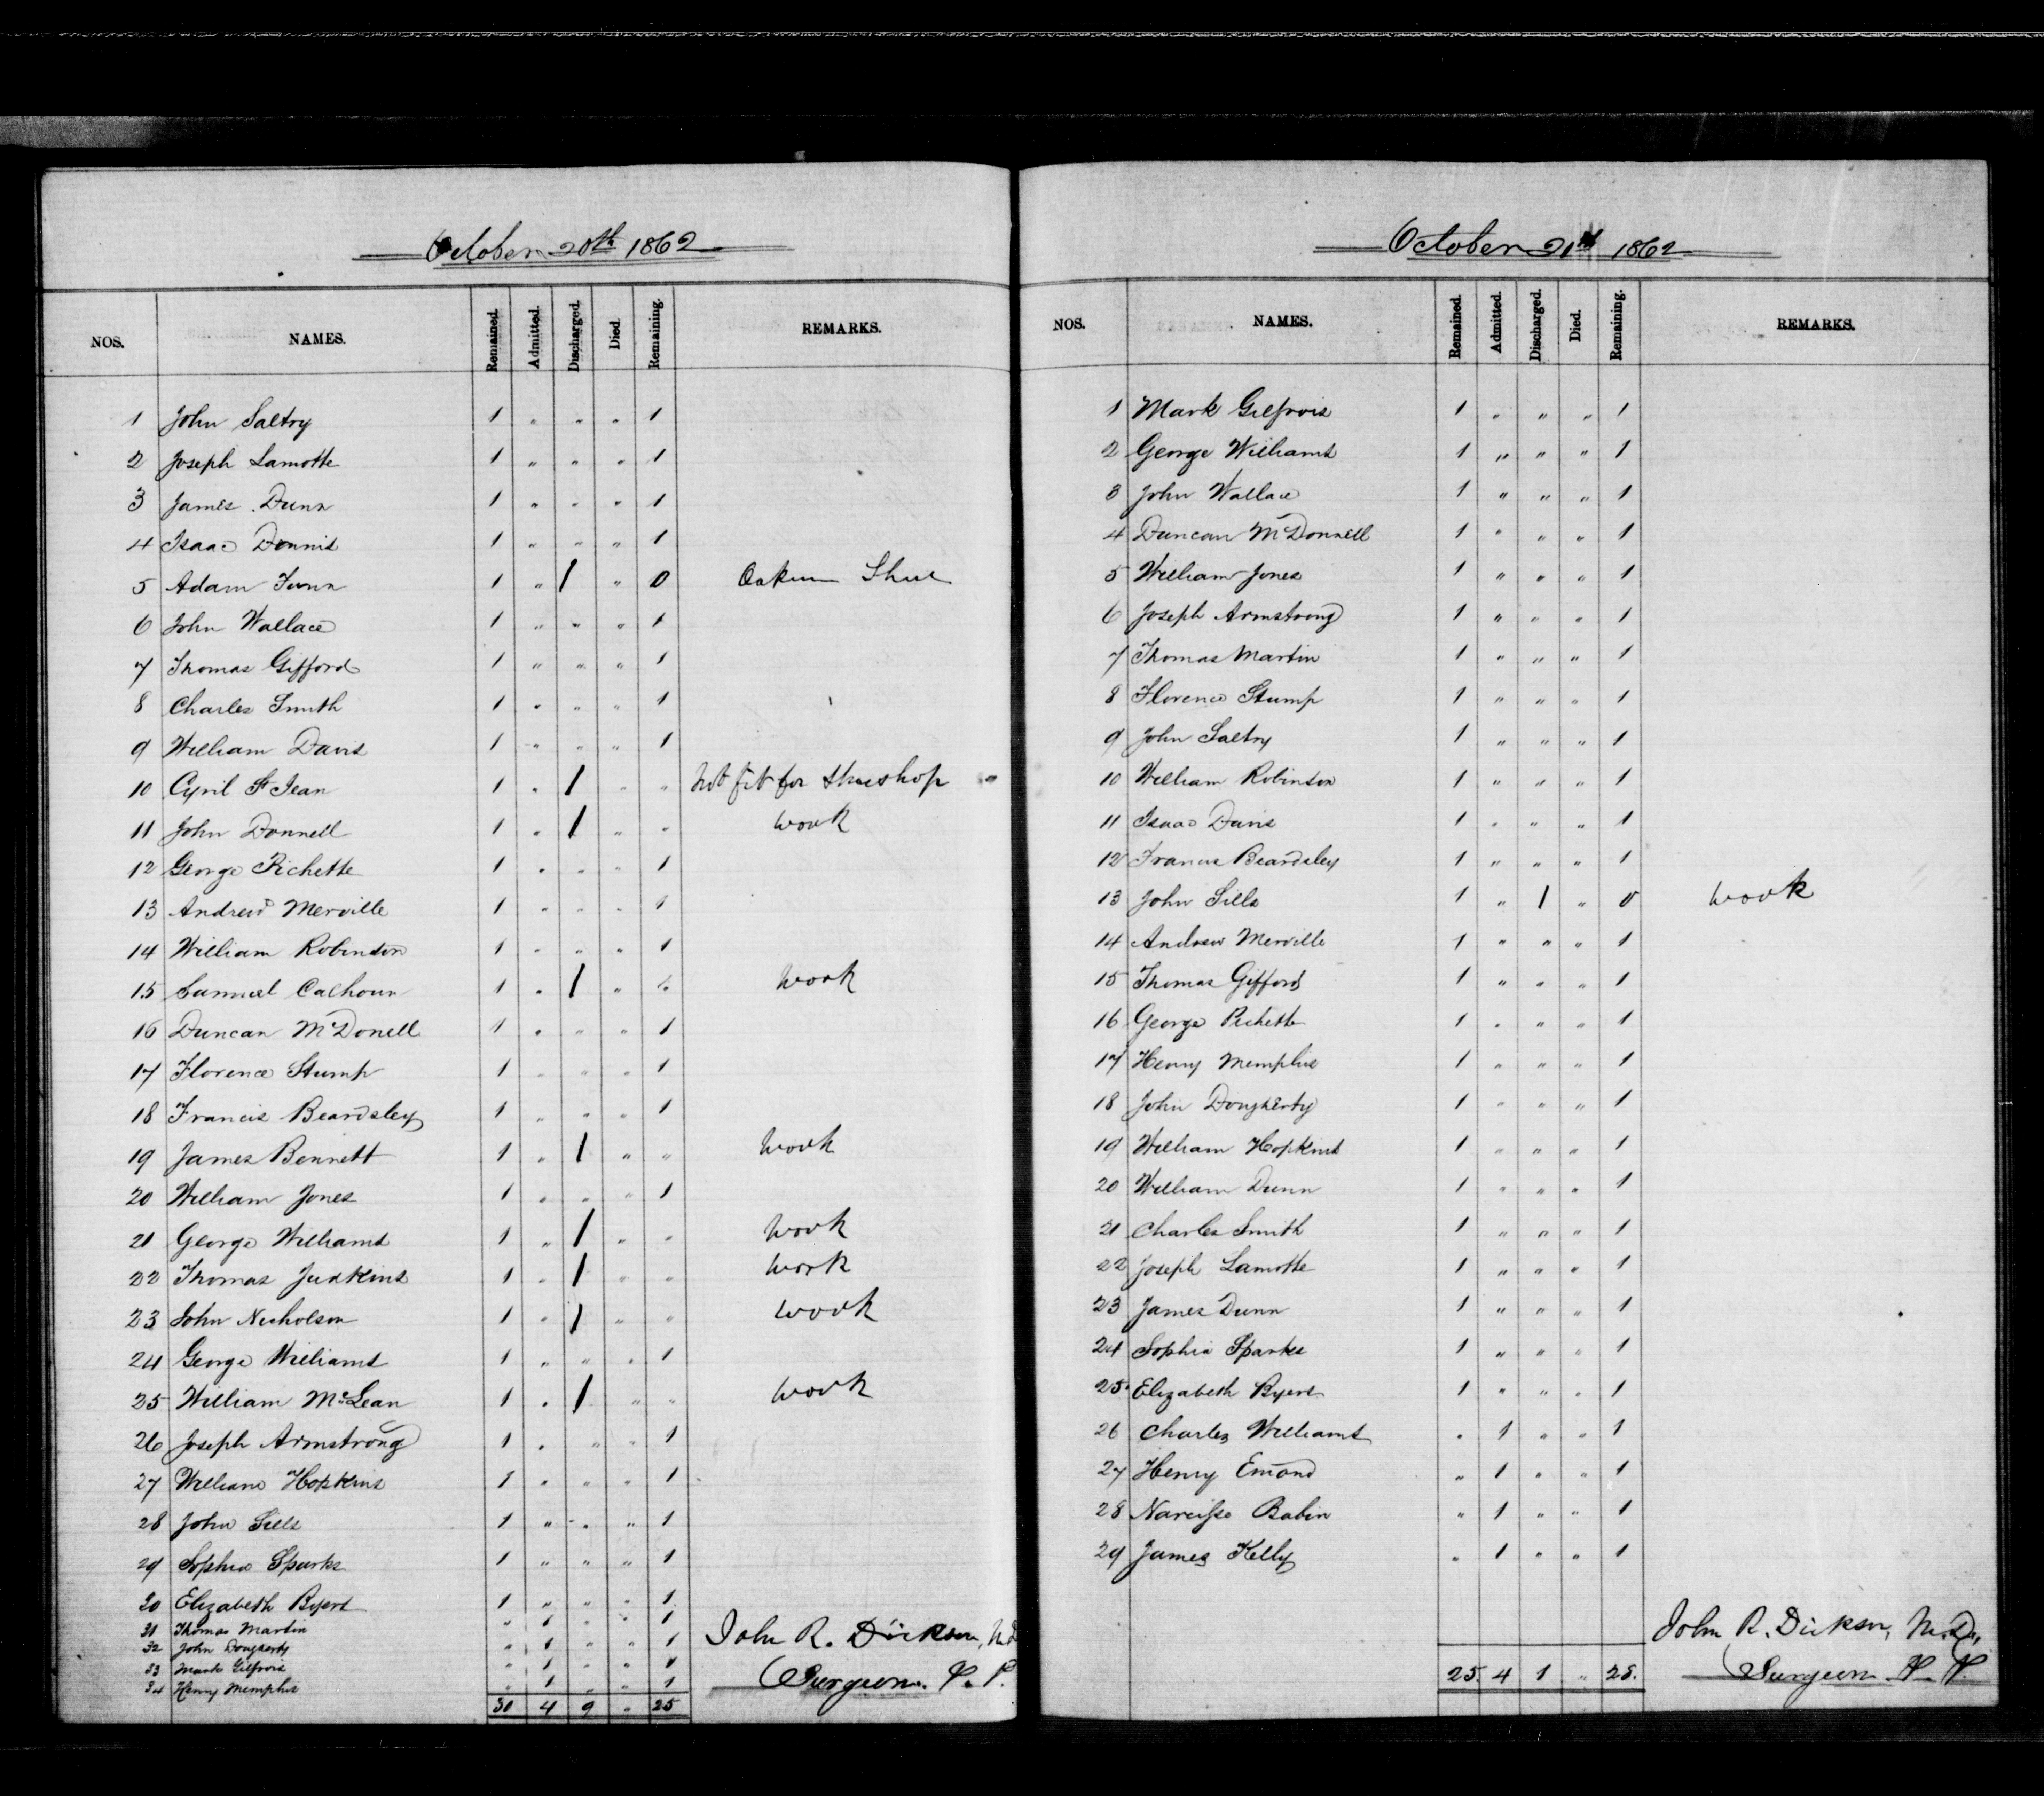 October 20th 1862
NOS. NAMES. Remained. Admitted. Discharged. Died. Remaining. REMARKS.
1 John Saltry 1 " " " 1
2 Joseph Lamotte 1 " " " 1
3 James Dunn 1 " " " 1
4 Isaac Dennis 1 " " " 1
5 Adam 1 " 1 " 0 Oakum
6 John Wallace 1 " " " 1
7 Thomas Gifford 1 " " " 1
8 Charles Smith 1 " " " 1
9 William Davis 1 " " " 1
10 Cyril St Jean 1 " 1 " " Not fit for shoeshop
11 John Donnell 1 " 1 " " work
12 George Pichette 1 " " " 1
13 Andrew Merville 1 " " " 1
14 William Robinson 1 " " " 1
15 Samuel Calhoun 1 " 1 " " work
16 Duncan McDonell 1 " " " 1
17 Florence Stump 1 " " " 1
18 Francis Beardsley 1 " " " 1
19 James Bennett 1 " 1 " " work
20 William Jones 1 " " " 1
21 George Williams 1 " 1 " " work
22 Thomas Judkins 1 " 1 " " work
23 John Nicholson 1 " 1 " " work
24 George Williams 1 " " " 1
25 William McLean 1 " 1 " " work
26 Joseph Armstrong 1 " " " 1
27 William Hopkins 1 " " " 1
28 John Sills 1 " " " 1
29 Sophia Sparks 1 " " " 1
30 Elizabeth Byers 1 " " " 1
31 Thomas Martin " 1 " " 1
32 John Dougherty " 1 " " 1
33 Mark Gilfrois " 1 " " 1
34 Henry Memphis " 1 " " 1
30 4 9 " 25
John R. Dickson, M.D
Surgeon. P. P.
October 21st 1862
NOS. NAMES. Remained. Admitted. Discharged. Died. Remaining. REMARKS.
1 Mark Gilfrois 1 " " " 1
2 George Williams 1 " " " 1
3 John Wallace 1 " " " 1
4 Duncan McDonnell 1 " " " 1
5 William Jones 1 " " " 1
6 Joseph Armstrong 1 " " " 1
7 Thomas Martin 1 " " " 1
8 Florence Stump 1 " " " 1
9 John Saltry 1 " " " 1
10 William Robinson 1 " " " 1
11 Isaac Davis 1 " " " 1
12 Francis Beardsley 1 " " " 1
13 John Sills 1 " 1 " 0 work
14 Andrew Merville 1 " " " 1
15 Thomas Gifford 1 " " " 1
16 George Pichette 1 " " " 1
17 Henry Memphis 1 " " " 1
18 John Dougherty 1 " " " 1
19 William Hopkins 1 " " " 1
20 William Dunn 1 " " " 1
21 Charles Smith 1 " " " 1
22 Joseph Lamotte 1 " " " 1
23 James Dunn 1 " " " 1
24 Sophia Sparks 1 " " " 1
25 Elizabeth Byers 1 " " " 1
26 Charles Williams " 1 " " 1
27 Henry Emond " 1 " " 1
28 Narcisse Babin " 1 " " 1
29 James Kelly " 1 " " 1
25. 4 1 " 28.
John R. Dickson, M.D.,
Surgeon P. P.